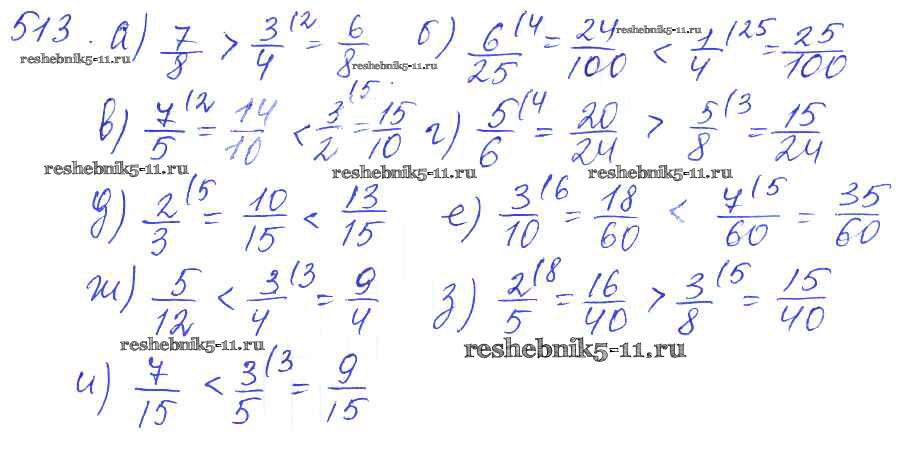 513. а) 7/8 > 3/4 (2 = 6/8 б) 6/25 (4 = 24/100 < 1/4 (25 = 25/100
reshebnik5-11.ru reshebnik5-11.ru reshebnik5-11.ru
в) 7/5 (2 = 14/10 < 3/2 (5 = 15/10 г) 5/6 (4 = 20/24 > 5/8 (3 = 15/24
reshebnik5-11.ru reshebnik5-11.ru reshebnik5-11.ru
д) 2/3 (5 = 10/15 < 13/15 е) 3/10 (6 = 18/60 < 7/60 (5 = 35/60
ж) 5/12 < 3/4 (3 = 9/4 з) 2/5 (8 = 16/40 > 3/8 (5 = 15/40
reshebnik5-11.ru reshebnik5-11.ru
и) 7/15 < 3/5 (3 = 9/15